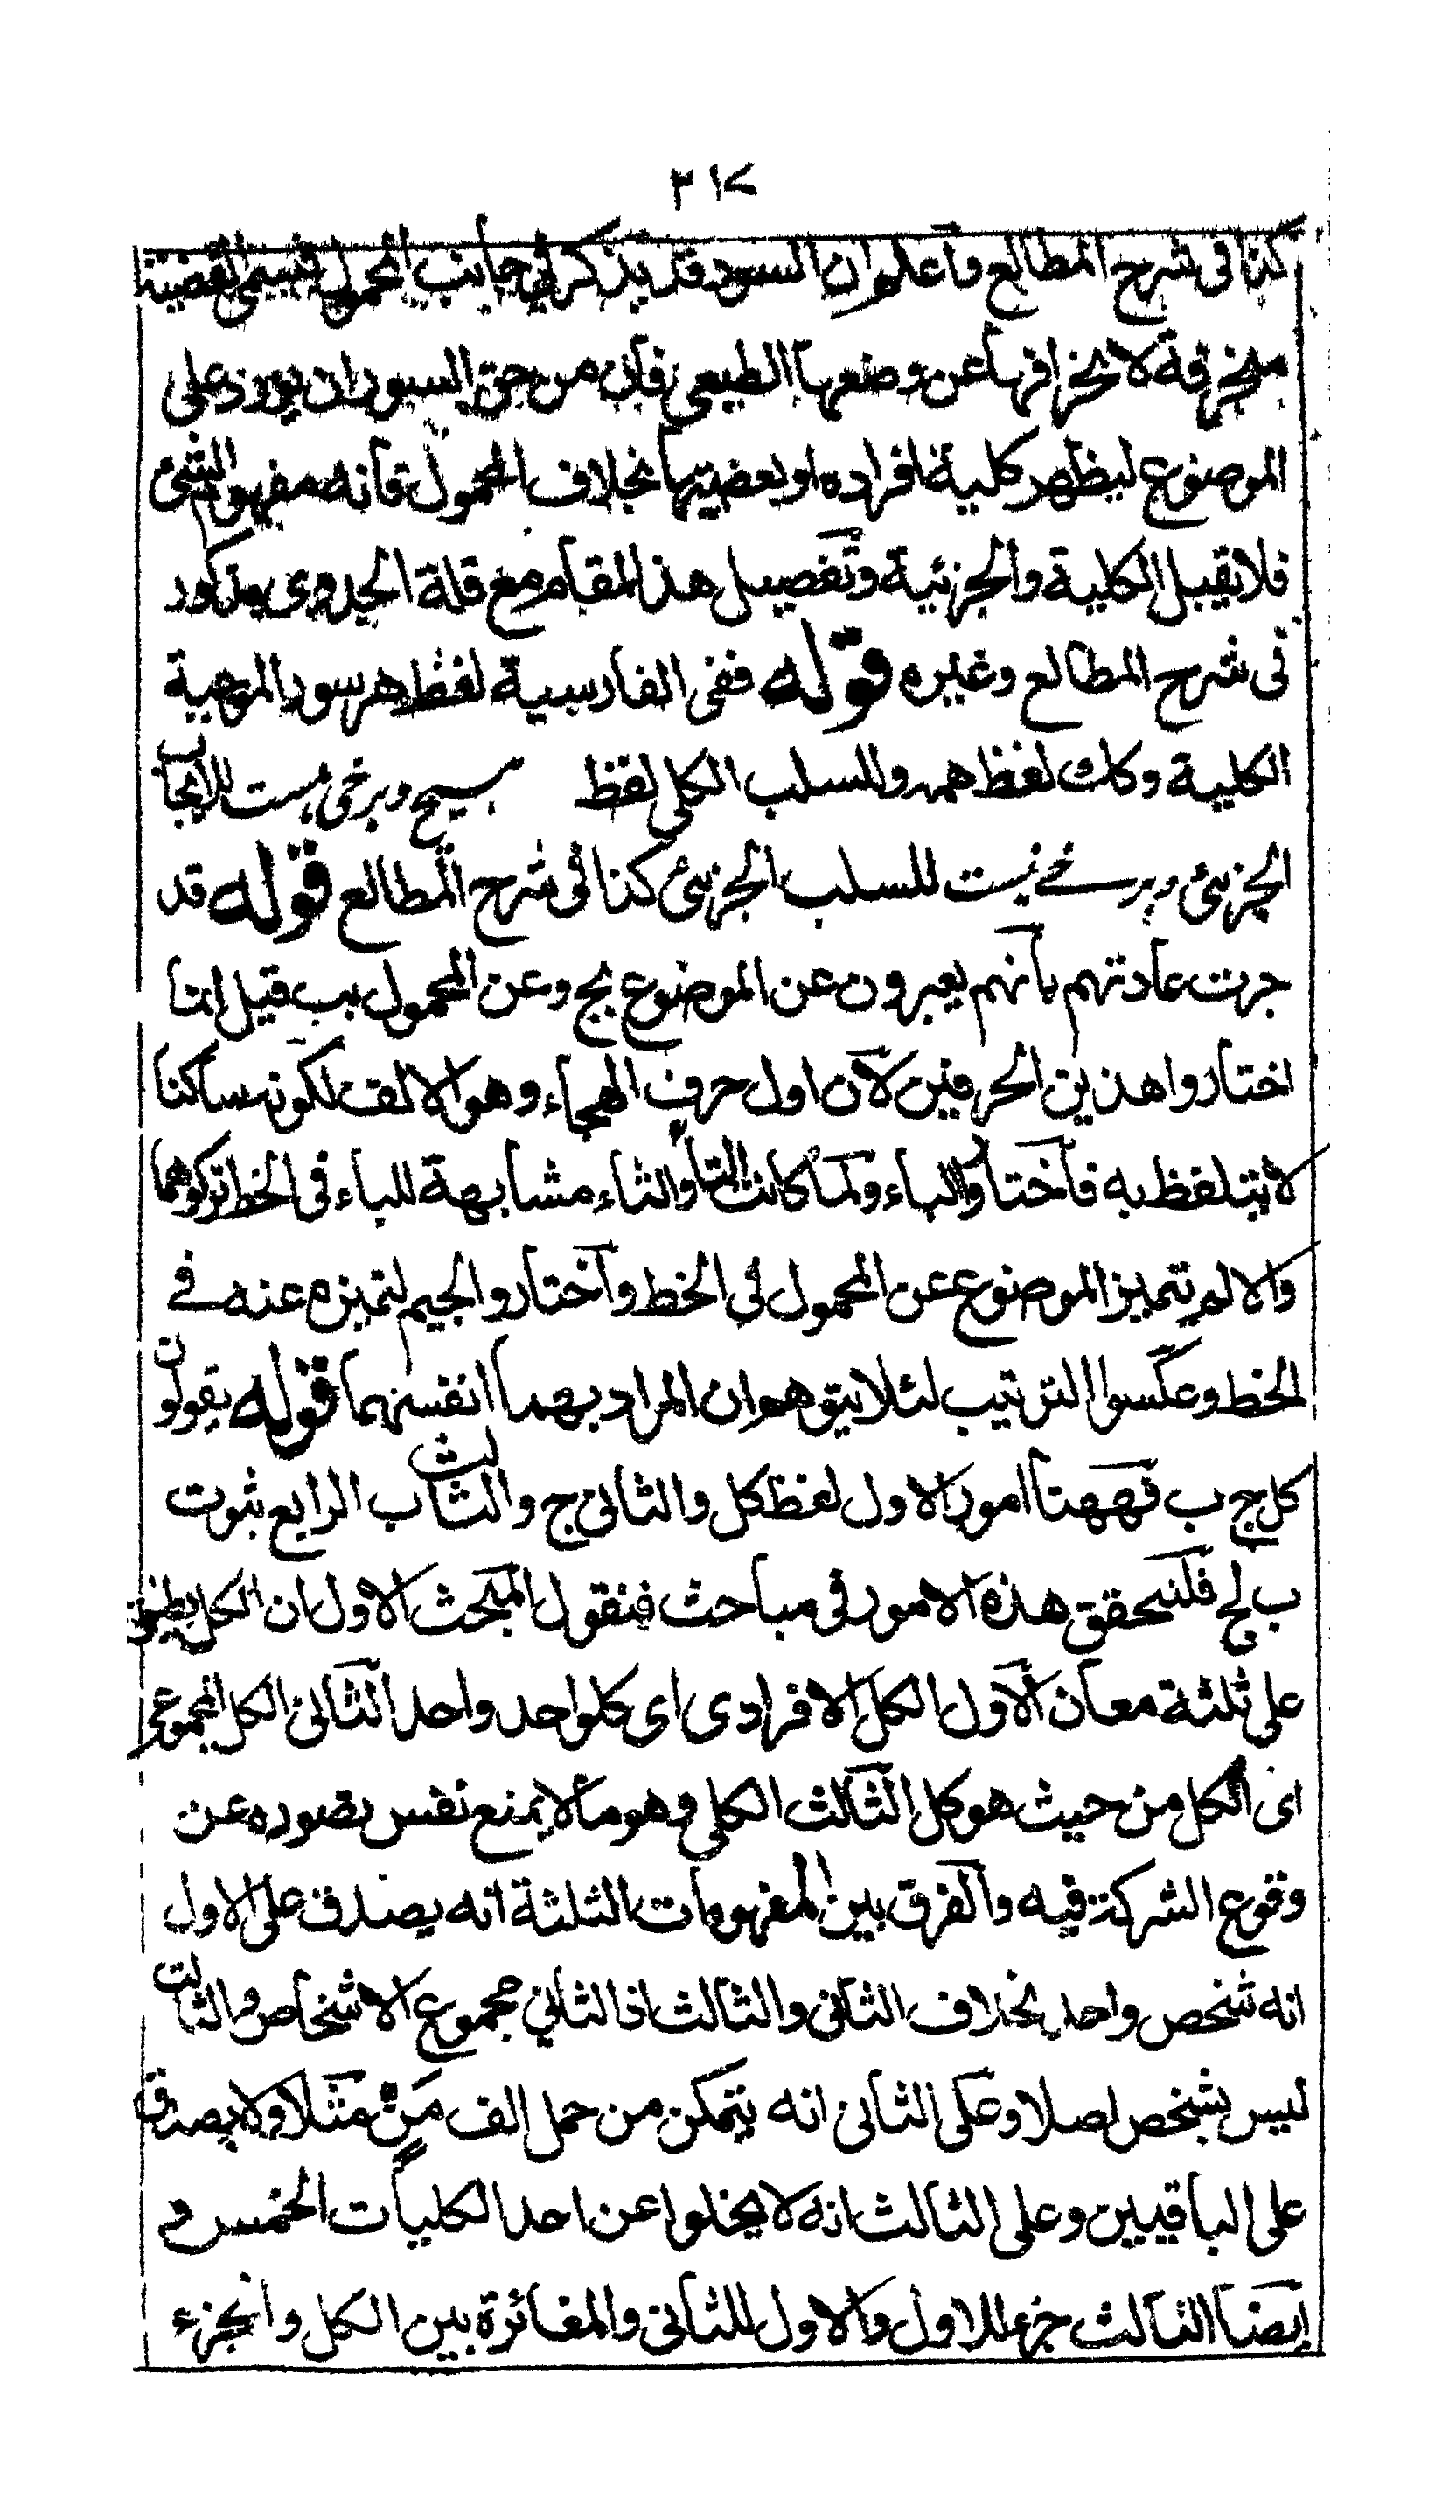 ٢١٧
كذا فى شرح المطالع واعلم ان السور قد يذكر فى جانب المحمول فيسمى القضية
منحرفة لانحرافها عن وضعها الطبيعى فان من حق السور ان يورد على
الموضوع ليظهر كلية افراده او بعضيتها بخلاف المحمول فانه مفهوم الشئ
فلا يقبل الكلية والجزئية وتفصيل هذا المقام مع قلة الجدوى مذكور
فى شرح المطالع وغيره قوله ففى الفارسية لفظ هر سور الموجبة
الكلية وكذا لفظ همه وللسلب الكلى لفظ هيچ وبرخى هست للايجاب
الجزئى وبرخے نيست للسلب الجزئى كذا فى شرح المطالع قوله قد
جرت عادتهم بانهم يعبرون عن الموضوع بج وعن المحمول بب قيل انما
اختاروا هذين الحرفين لان اول حرف الهجاء وهو الالف لكونه ساكنا
لا يتلفظ به فاختاروا الباء ولما كانت التاء والثاء مشابهة للباء فى الخط تركوهما
والا لم يتميز الموضوع عن المحمول فى الخط واختاروا الجيم لتميزه عنه فے
الخط وعكسوا الترتيب لئلا يتوهم ان المراد بهما انفسهما قوله يقولون
كل ج ب فههنا امور الاول لفظ كل والثانى ج والثالث ب الرابع ثبوت
ب لج فلنحقق هذه الامور فى مباحث فنقول المبحث الاول ان الكل يطلق
على ثلثة معان الاول الكل الافرادى اى كلواحد واحد الثانى الكل المجموعى
اى الكل من حيث هو كل الثالث الكلى وهو ما لا يمنع نفس تصوره عن
وقوع الشركة فيه والفرق بين المفهومات الثلثة انه يصدق على الاول
انه شخص واحد بخلاف الثانى والثالث اذ الثانى مجموع الاشخاص والثالث
ليس بشخص اصلا وعلى الثانى انه يتمكن من حمل الف مَنٍّ مثلا ولا يصدق
على الباقيين وعلى الثالث انه لا يخلوا عن احد الكليات الخمس و
ايضا الثالث جزء للاول والاول للثانى والمغائرة بين الكل والجزء